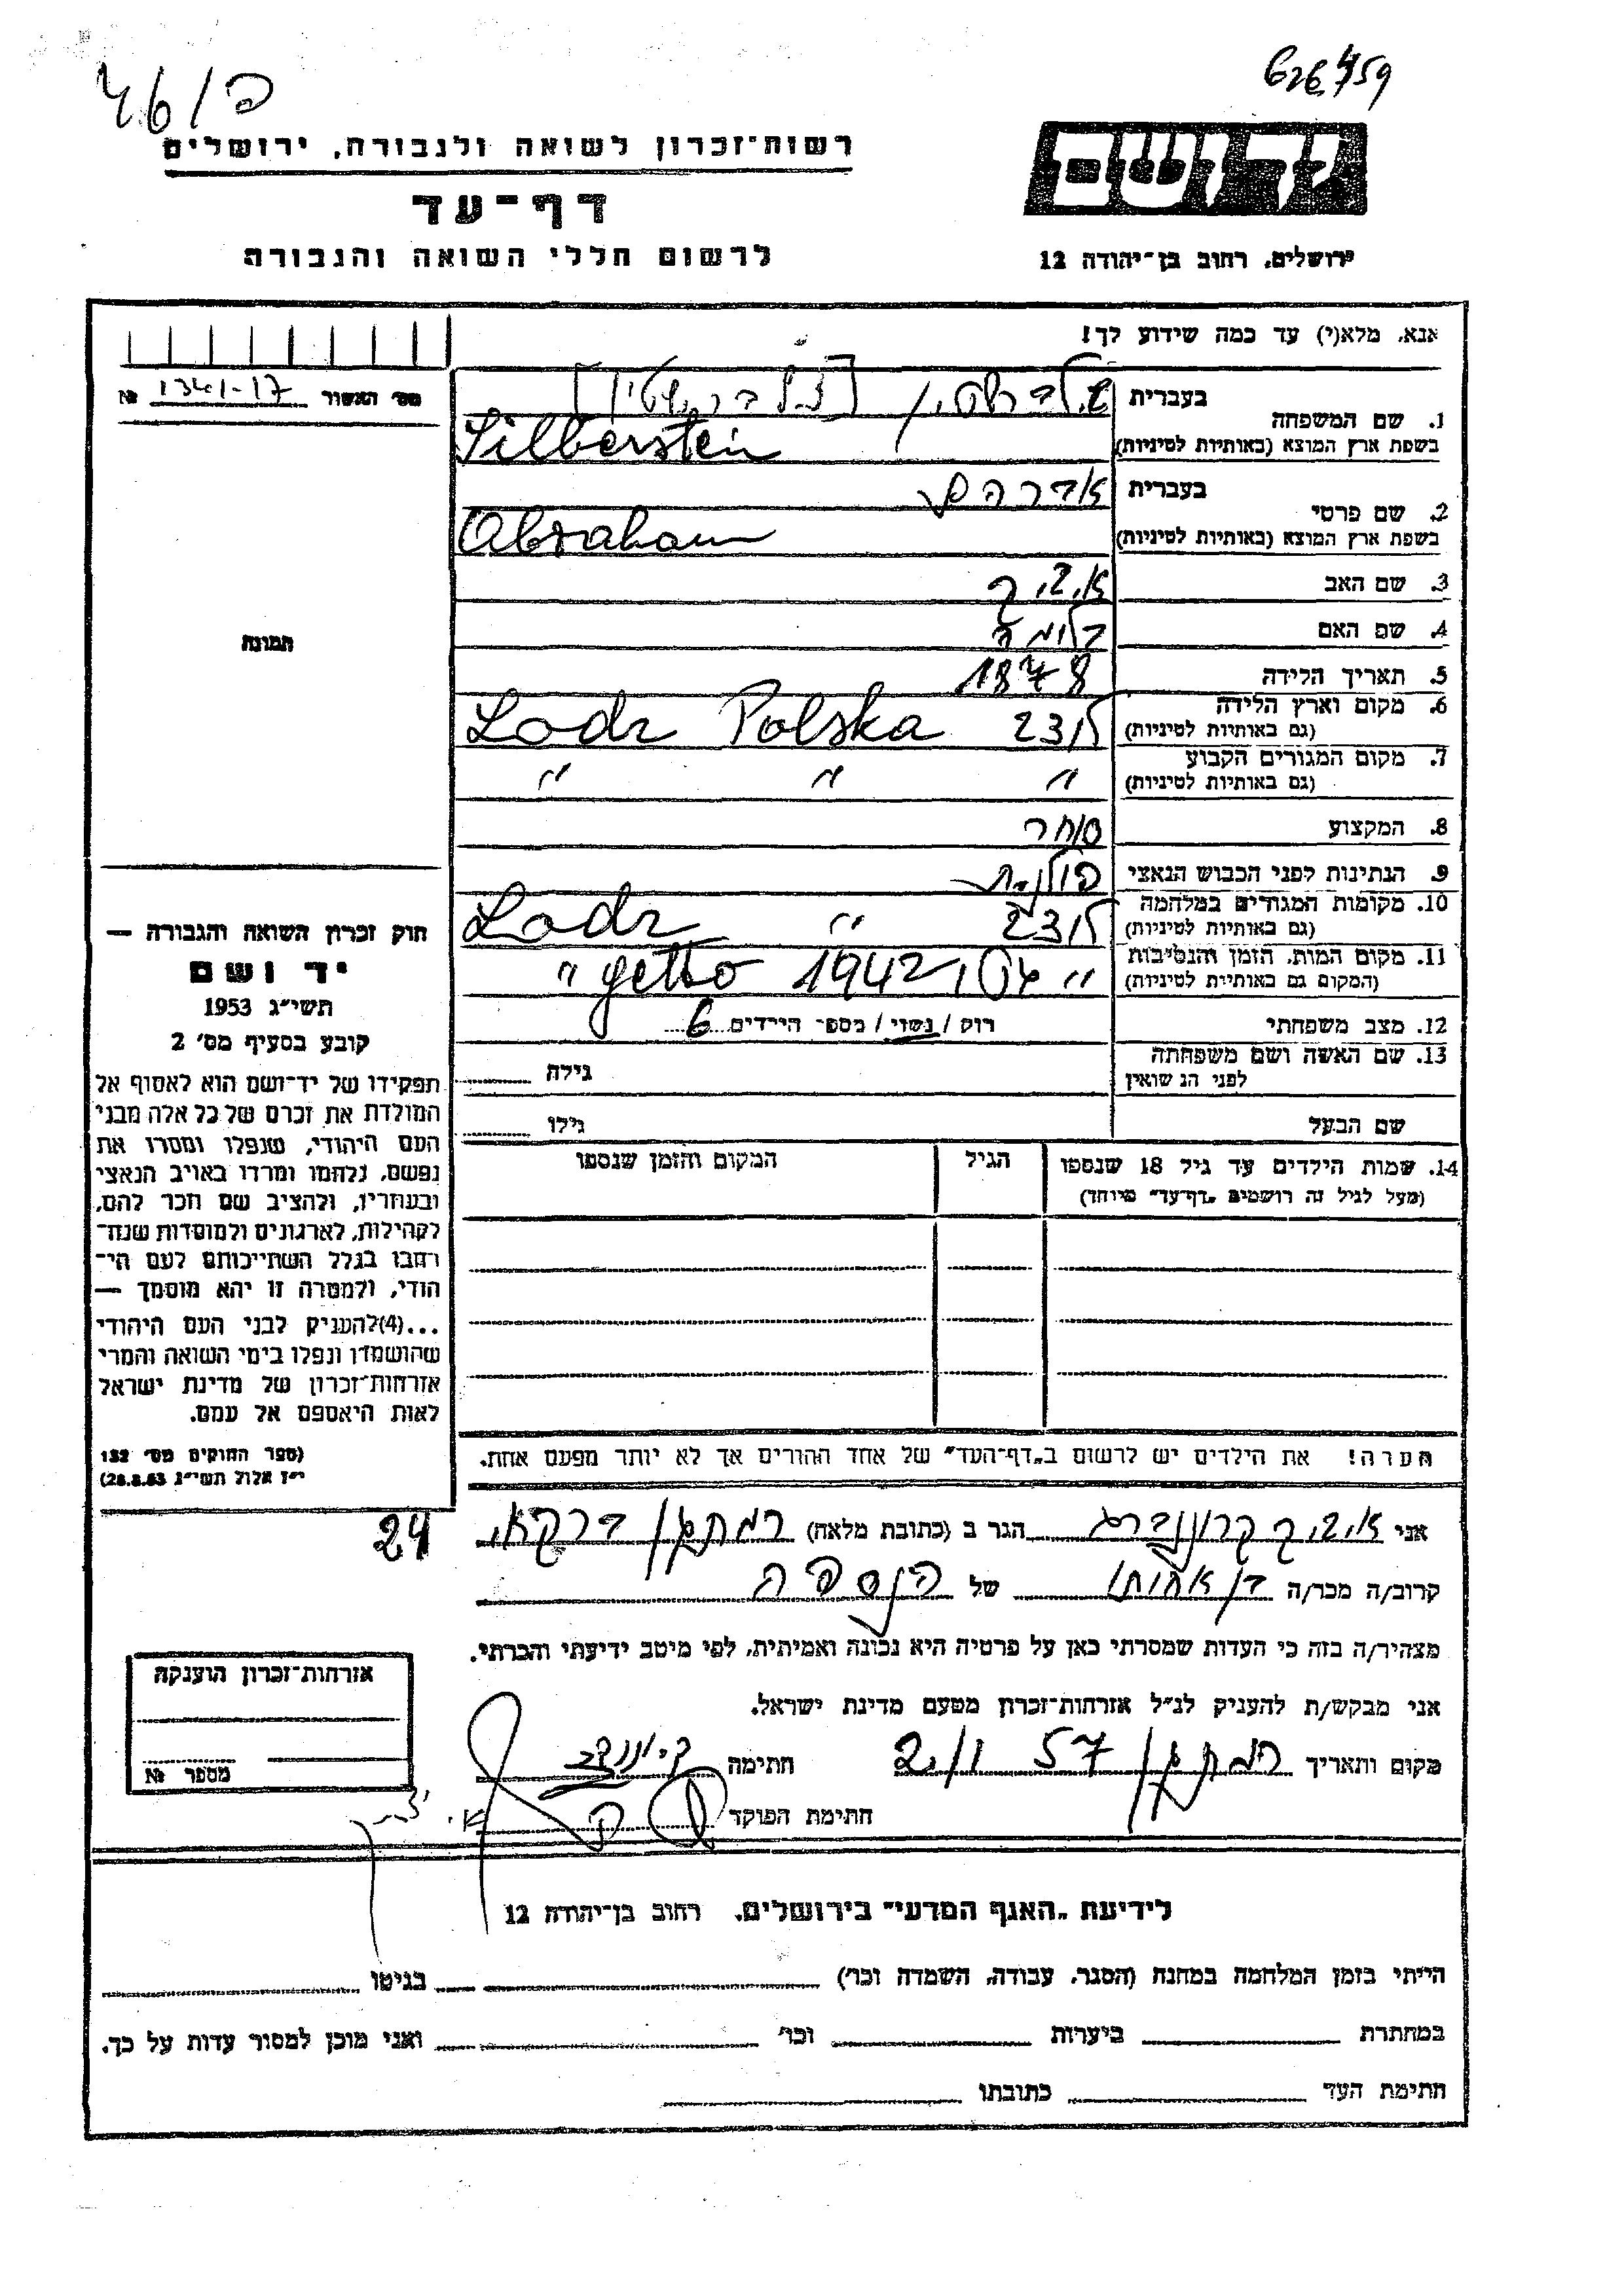 626459
46/פ
רשות־זכרון לשואה ולגבורה, ירושלים
יד ושם
דף־עד
ירושלים, רחוב בן־יהודה 12
לרשום חללי השואה והגבורה
אנא, מלא(י) עד כמה שידוע לך!
מס׳ האשור 1341-17 №
1. שם המשפחה
בעברית זילברשטין [זילברשטין]
בשפת ארץ המוצא (באותיות לטיניות) Silberstein
2. שם פרטי
בעברית אברהם
בשפת ארץ המוצא (באותיות לטיניות) Abraham
3. שם האב אייזיק
4. שם האם בלומה
5. תאריך הלידה 1878
6. מקום וארץ הלידה (גם באותיות לטיניות) לודז Lodz Polska
7. מקום המגורים הקבוע (גם באותיות לטיניות) " " "
8. המקצוע סוחר
9. הנתינות לפני הכבוש הנאצי פולנית
10. מקומות המגורים במלחמה (גם באותיות לטיניות) לודז " Lodz
11. מקום המות, הזמן והנסיבות (המקום גם באותיות לטיניות) " 1942 getto "
12. מצב משפחתי רווק / נשוי / מספר הילדים 6
13. שם האשה ושם משפחתה לפני הנשואין גילה
שם הבעל גילו
14. שמות הילדים עד גיל 18 שנספו הגיל המקום והזמן שנספו
(מעל לגיל זה רושמים "דף־עד" מיוחד)
הערה! את הילדים יש לרשום ב"דף־העד" של אחד ההורים אך לא יותר מפעם אחת.
תמונה
חוק זכרון השואה והגבורה —
יד ושם
תשי״ג 1953
קובע בסעיף מס׳ 2
תפקידו של יד־ושם הוא לאסוף אל
המולדת את זכרם של כל אלה מבני
העם היהודי, שנפלו ומסרו את
נפשם, נלחמו ומרדו באויב הנאצי
ובעוזריו, ולהציב שם וזכר להם,
לקהילות, לארגונים ולמוסדות שנח־
רבו בגלל השתייכותם לעם הי־
הודי, ולמטרה זו יהא מוסמך —
...(4)להעניק לבני העם היהודי
שהושמדו ונפלו בימי השואה והמרי
אזרחות־זכרון של מדינת ישראל
לאות היאספם אל עמם.
(ספר החוקים מס׳ 132
י״ז אלול תשי״ג 28.8.53)
24
אני אייזיק קרוננברג הגר ב (כתובת מלאה) רמת גן
קרוב/ה מכר/ה בן אחותו של הנספה
מצהיר/ה בזה כי העדות שמסרתי כאן על פרטיה היא נכונה ואמיתית, לפי מיטב ידיעתי והכרתי.
אני מבקש/ת להעניק לנ״ל אזרחות־זכרון מטעם מדינת ישראל.
מקום ותאריך רמת גן 2/1 57 חתימה
חתימת הפוקד
אזרחות־זכרון הוענקה
מספר №
לידיעת "האגף המדעי" בירושלים, רחוב בן־יהודה 12
הייתי בזמן המלחמה במחנה (הסגר, עבודה, השמדה וכו׳) בגיטו
במחתרת ביערות וכו׳ ואני מוכן למסור עדות על כך.
חתימת העד כתובתו